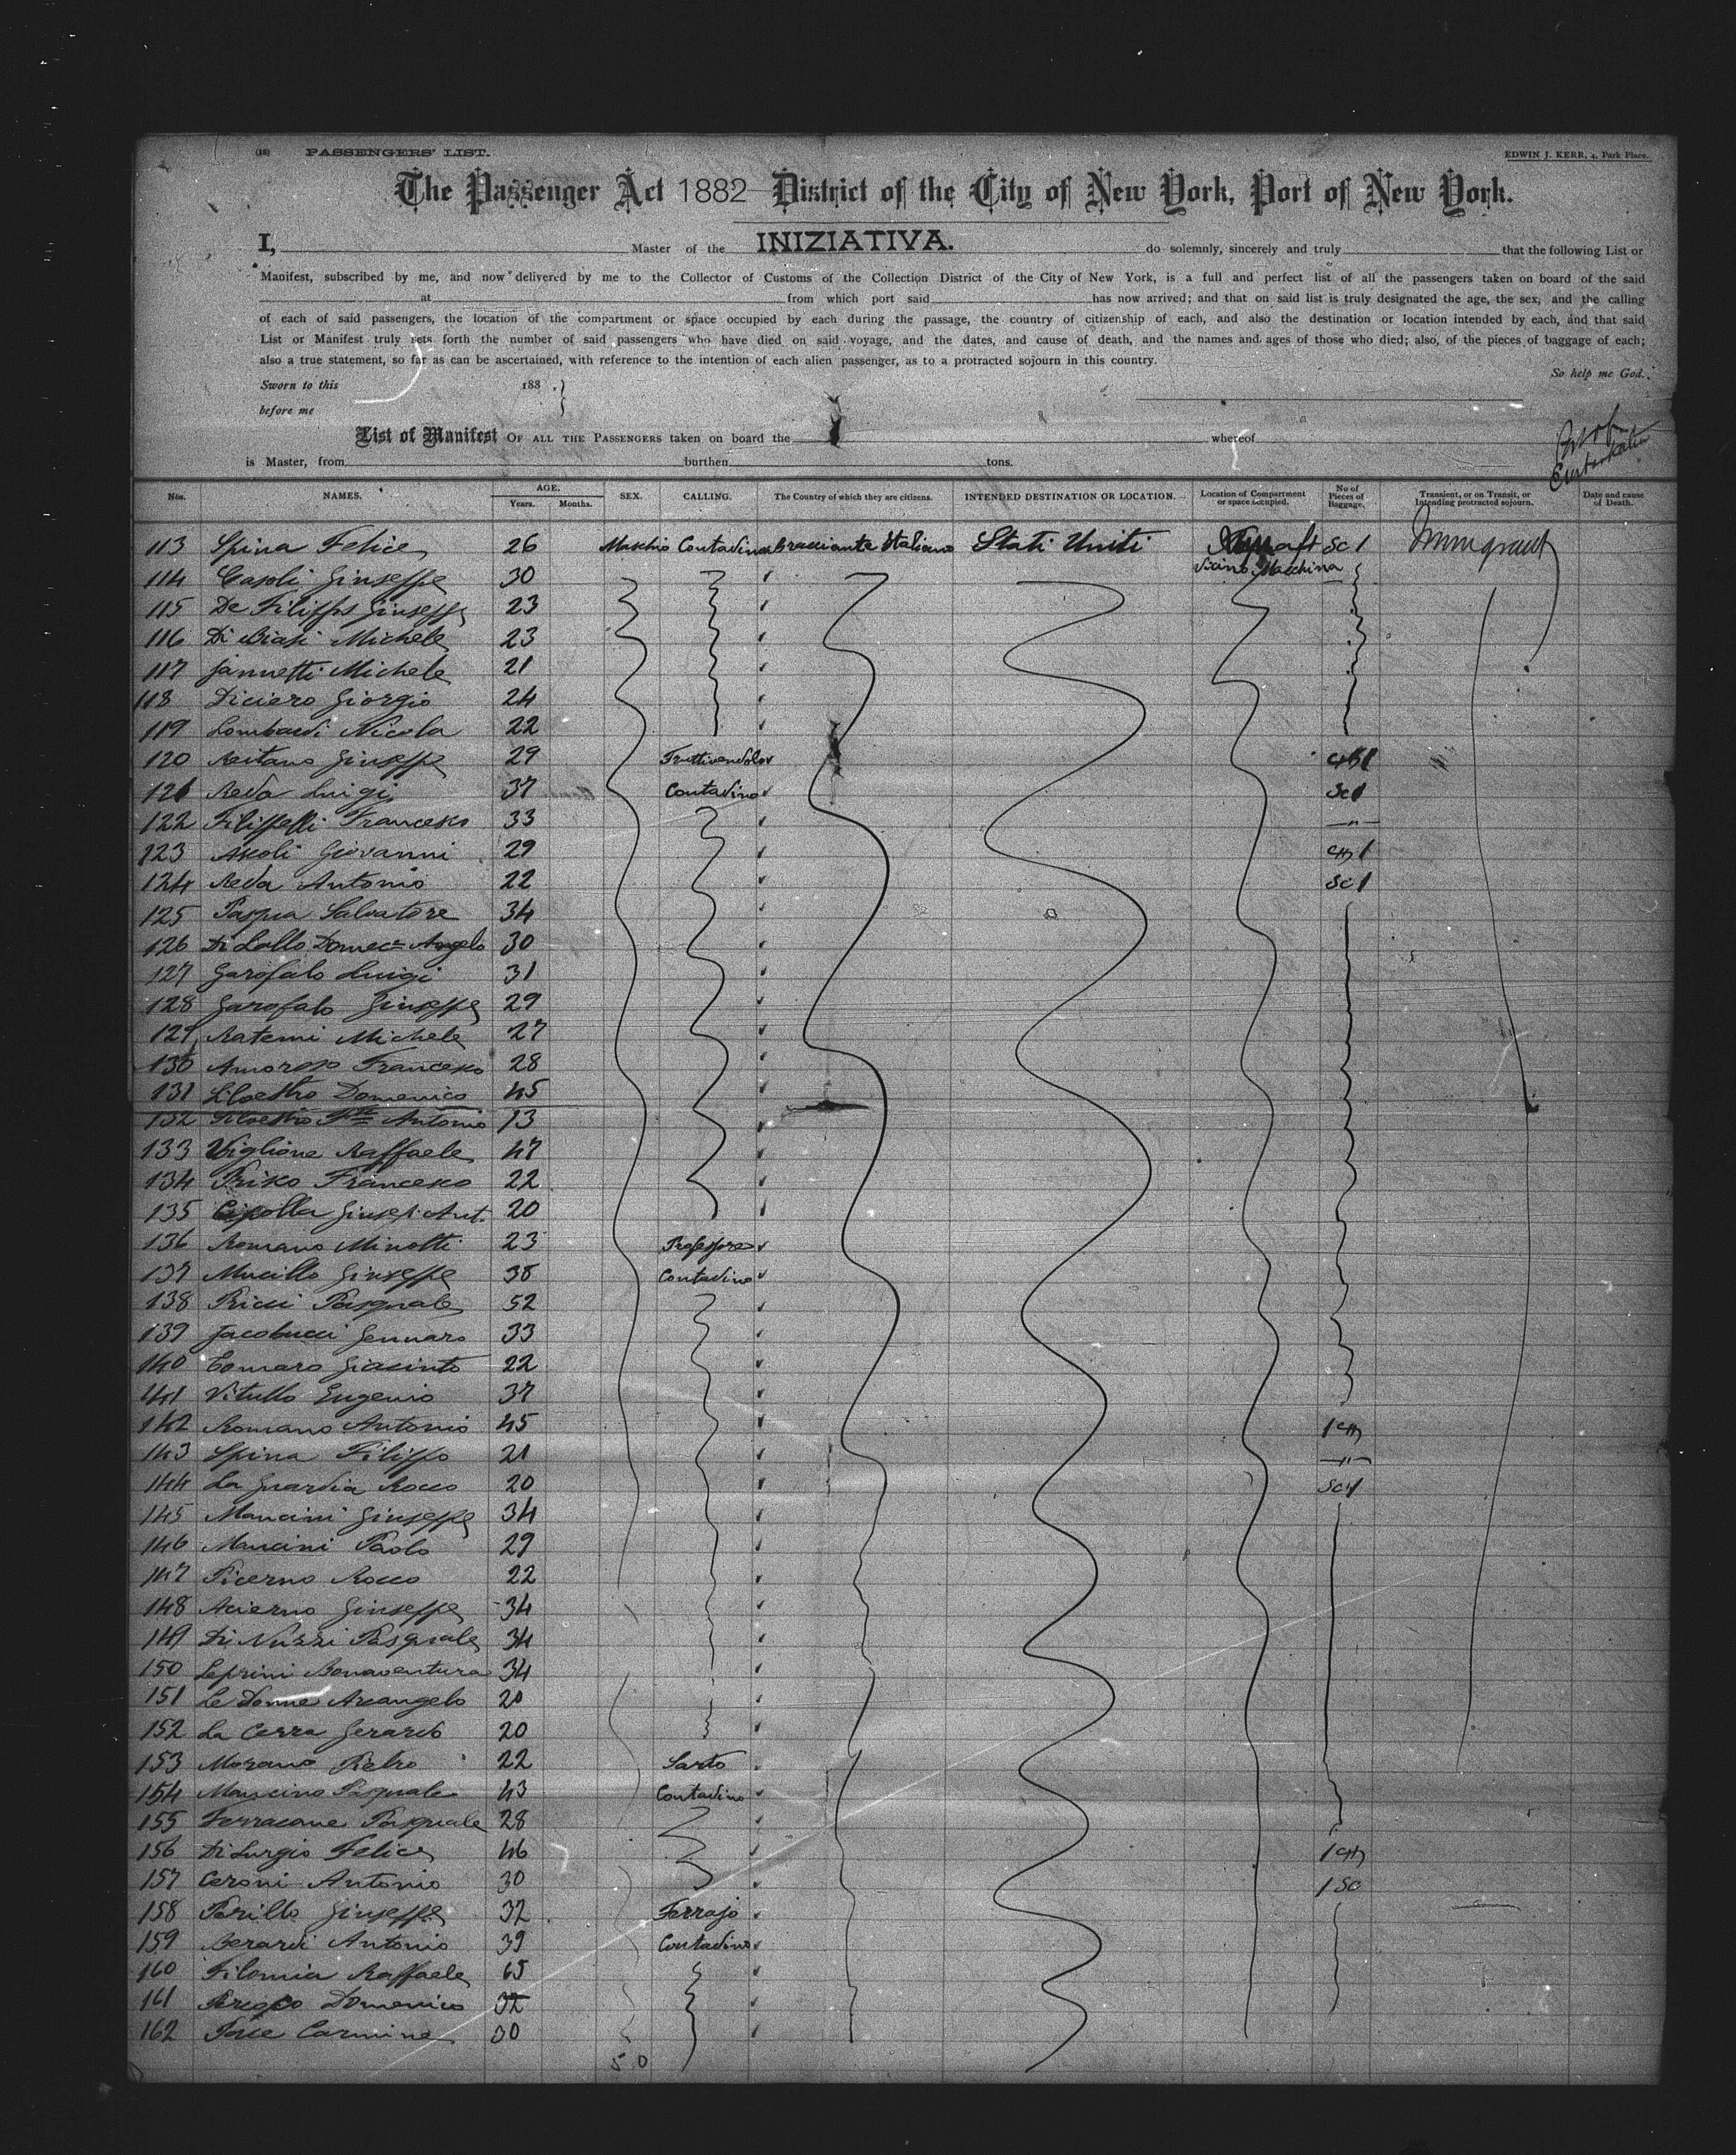 (16) PASSENGERS' LIST.
EDWIN J. KERR, 4, Park Place.
The Passenger Act 1882 District of the City of New York, Port of New York.
I, Master of the INIZIATIVA. do solemnly, sincerely and truly that the following List or
Manifest, subscribed by me, and now delivered by me to the Collector of Customs of the Collection District of the City of New York, is a full and perfect list of all the passengers taken on board of the said
at from which port said has now arrived; and that on said list is truly designated the age, the sex, and the calling
of each of said passengers, the location of the compartment or space occupied by each during the passage, the country of citizenship of each, and also the destination or location intended by each, and that said
List or Manifest truly sets forth the number of said passengers who have died on said voyage, and the dates, and cause of death, and the names and ages of those who died; also, of the pieces of baggage of each;
also a true statement, so far as can be ascertained, with reference to the intention of each alien passenger, as to a protracted sojourn in this country.
Sworn to this 188 So help me God.
before me
List of Manifest OF ALL THE PASSENGERS taken on board the whereof
is Master, from burthen tons.
Port of Embarkation
Nos. NAMES. AGE. Years. Months. SEX. CALLING. The Country of which they are citizens. INTENDED DESTINATION OR LOCATION. Location of Compartment or space occupied. No of Pieces of Baggage. Transient, or on Transit, or Intending protracted sojourn. Date and cause of Death.
113 Spina Felice 26 Maschio Contadino Bracciante Italiano Stati Uniti aft Sc 1 Immigrant
Vicino Macchina
114 Casoli Giuseppe 30
115 De Filipps Giuseppe 23
116 Di Biasi Michele 23
117 Jannetti Michele 21
118 Diciero Giorgio 24
119 Lombardi Nicola 22
120 Reitano Giuseppe 29 Fruttivendolo
121 Reda Luigi 37 Contadino Sc 1
122 Filippelli Francesco 33 "
123 Ascoli Giovanni 29
124 Reda Antonio 22 Sc 1
125 Salvatore 34
126 Di Lallo Domeco Angelo 30
127 Garofalo Luigi 31
128 Garofalo Giuseppe 29
129 Ratemi Michele 27
130 Amoroso Francesco 28
131 Silvestro Domenico 45
132 Silvestro Antonio 13
133 Viglione Raffaele 47
134 Prisco Francesco 22
135 Cipolla Giusep. Ant. 20
136 Romano Minotti 23 Professore
137 Mucillo Giuseppe 38 Contadino
138 Ricci Pasquale 52
139 Jacobucci Gennaro 33
140 Tomaro Giacinto 22
141 Vitullo Eugenio 37
142 Romano Antonio 45 1
143 Spina Filippo 21 "
144 La Guardia Rocco 20 Sc 1
145 Mancini Giuseppe 34
146 Mancini Paolo 29
147 Picerno Rocco 22
148 Acierno Giuseppe 34
149 Di Nuzzi Pasquale 34
150 Leprini Bonaventura 34
151 Le Donne Arcangelo 20
152 La Cerra Gerardo 20
153 Morano Pietro 22 Sarto
154 Mancino Pasquale 43 Contadino
155 Ferracane Pasquale 28
156 Di Lurgio Felice 46 1
157 Ceroni Antonio 30 1 Sc
158 Perillo Giuseppe 32 Ferrajo
159 Berardi Antonio 39 Contadino
160 Filomia Raffaele 65
161 Domenico 32
162 Carmine 30
50